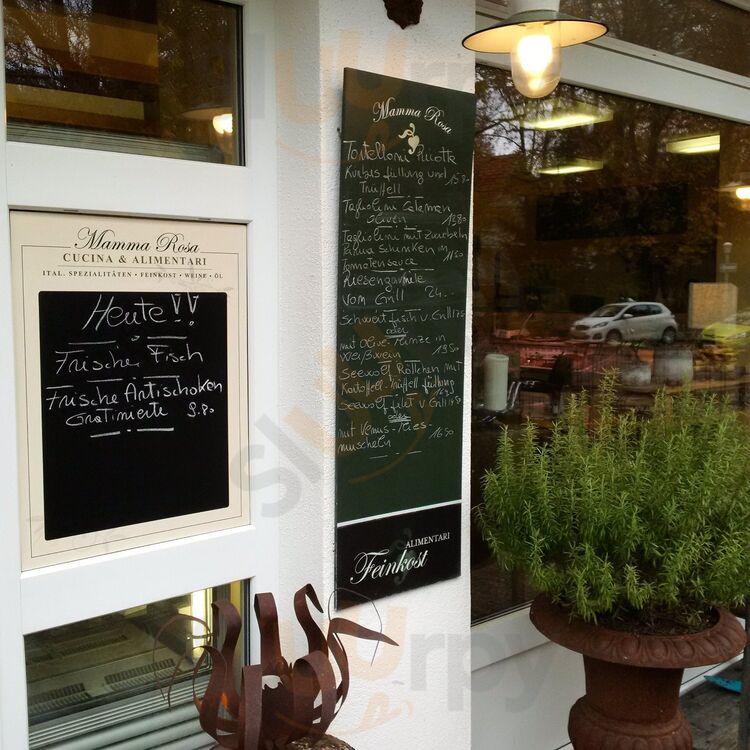 Mamma Rosa
CUCINA & ALIMENTARI
ITAL. SPEZIALITÄTEN • FEINKOST • WEINE • ÖL
Heute!!
Frischer Fisch
Frische Antischoken
Gratinierte 9.80
Mamma Rosa
Tortelloni Ricotta
Kürbis füllung und
Trüffell 15.80
Tagliolini Calamari
oliven 12.80
Tagliolini mit zwiebeln
Parma Schinken in
Tomatensauce 11.50
Riesengarnele
vom Grill 24.-
Schwertfisch v. Grill
oder
mit Olive-Minze in
Weißwein 19.50
Seewolf Röllchen mit
Kartoffell-trüffell füllung
Seewolf filet v. Grill
oder
mit Venus-Mies-
muscheln 16.50
ALIMENTARI
Feinkost